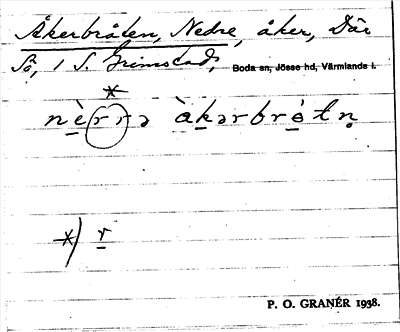 Åkerbråten, Nedre, åker, Där
Sö, 1 S. Grimstad, Boda sn, Jösse hd, Värmlands l.
*
nèrrə àkərbråtn̥
*) r
P. O. GRANÉR 1938.